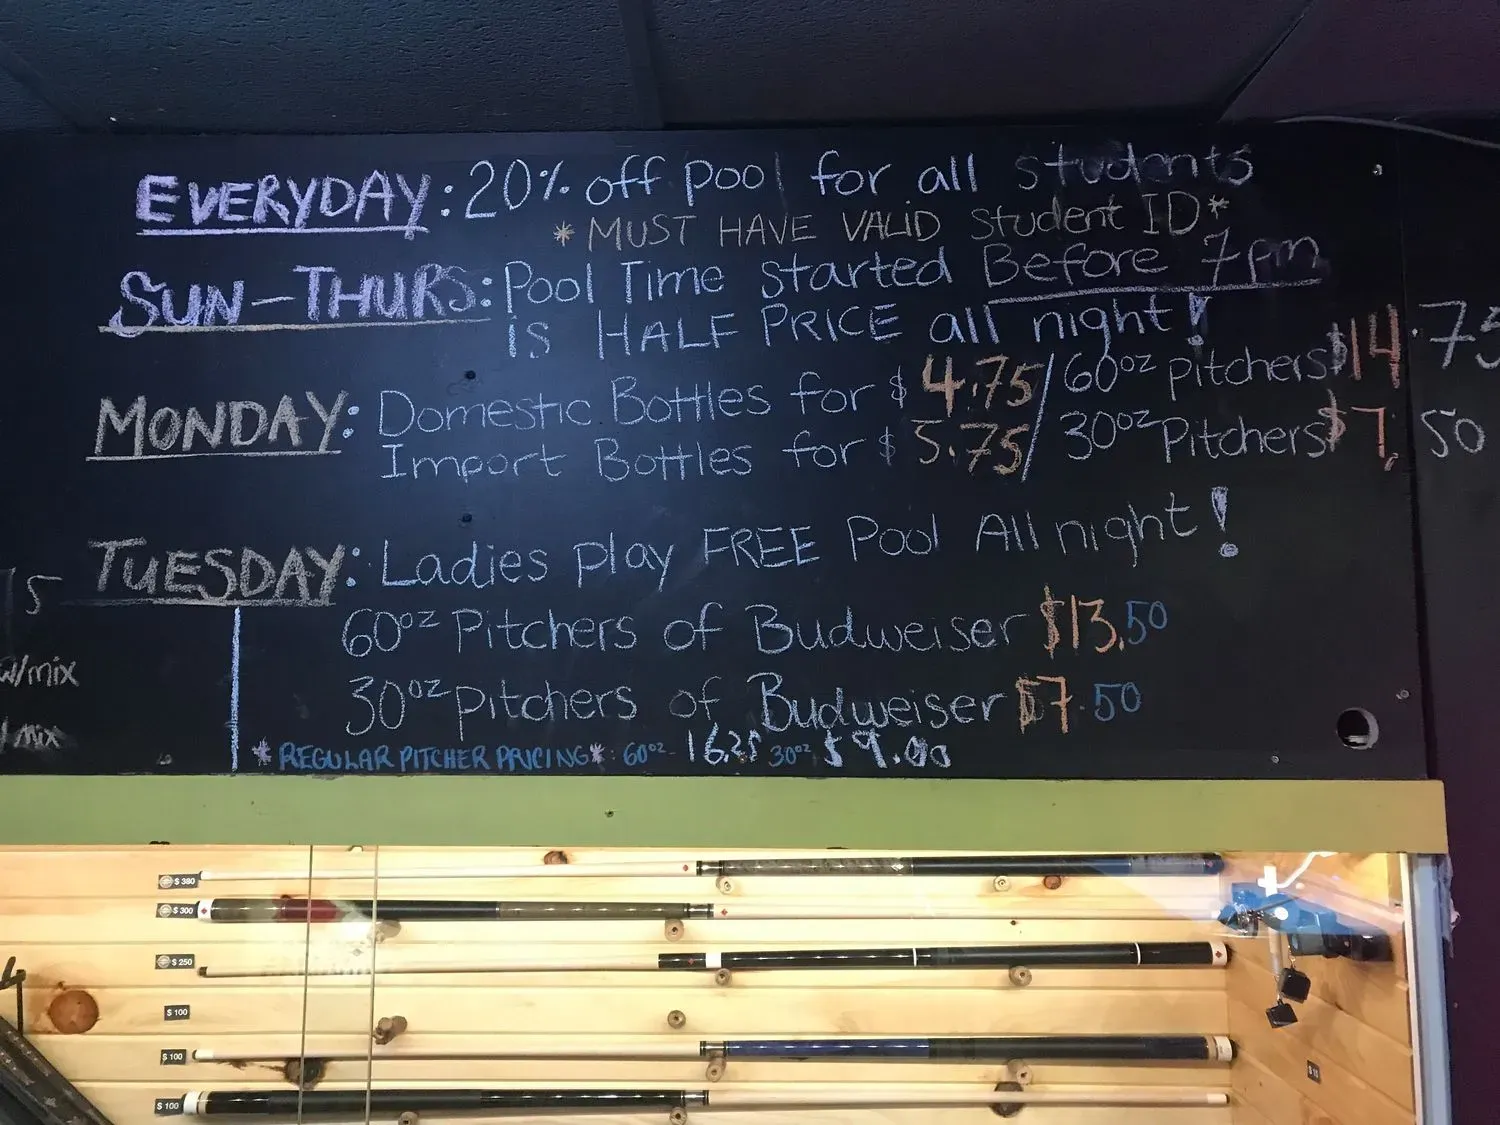 EVERYDAY: 20% off pool for all students
* MUST HAVE VALID student ID *
SUN-THURS: Pool Time started Before 7pm
is HALF PRICE all night!
MONDAY: Domestic Bottles for $4.75 / 60oz pitchers $14.75
Import Bottles for $5.75 / 30oz Pitchers $7.50
TUESDAY: Ladies play FREE Pool All night!
60oz Pitchers of Budweiser $13.50
30oz pitchers of Budweiser $7.50
*REGULAR PITCHER PRICING*: 60oz- 16.25 30oz $9.00
5
w/mix
/mix
$ 380
$ 300
$ 250
$ 100
$ 100
$ 100